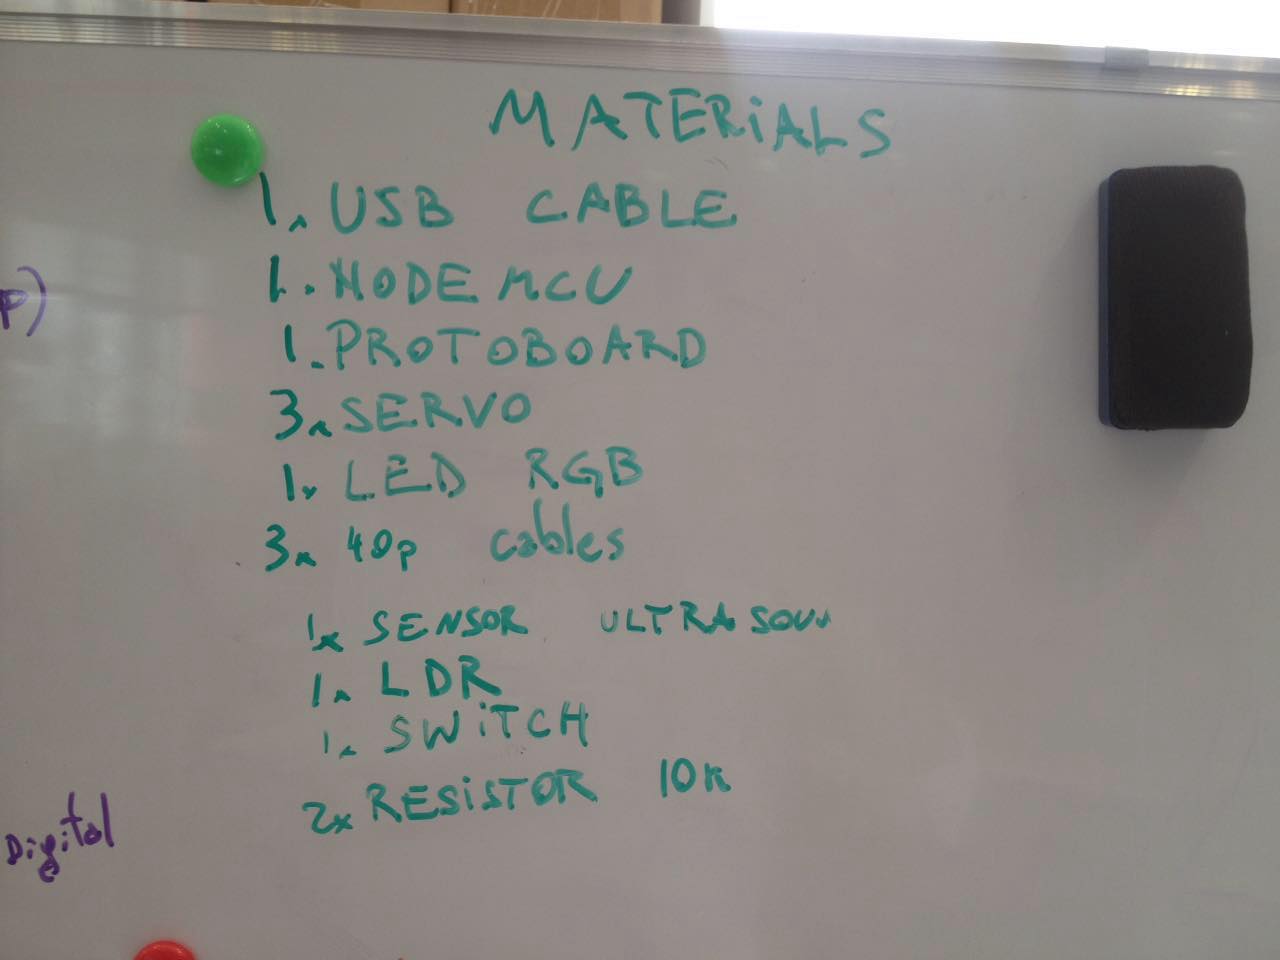 MATERiALS
1x USB CABLE
1x NODEMCU
1x PROTOBOARD
3x SERVO
1x LED RGB
3x 40p cables
1x SENSOR ULTRASOUN
1x LDR
1x SWiTCH
2x RESiSTOR 10K
p)
Digital